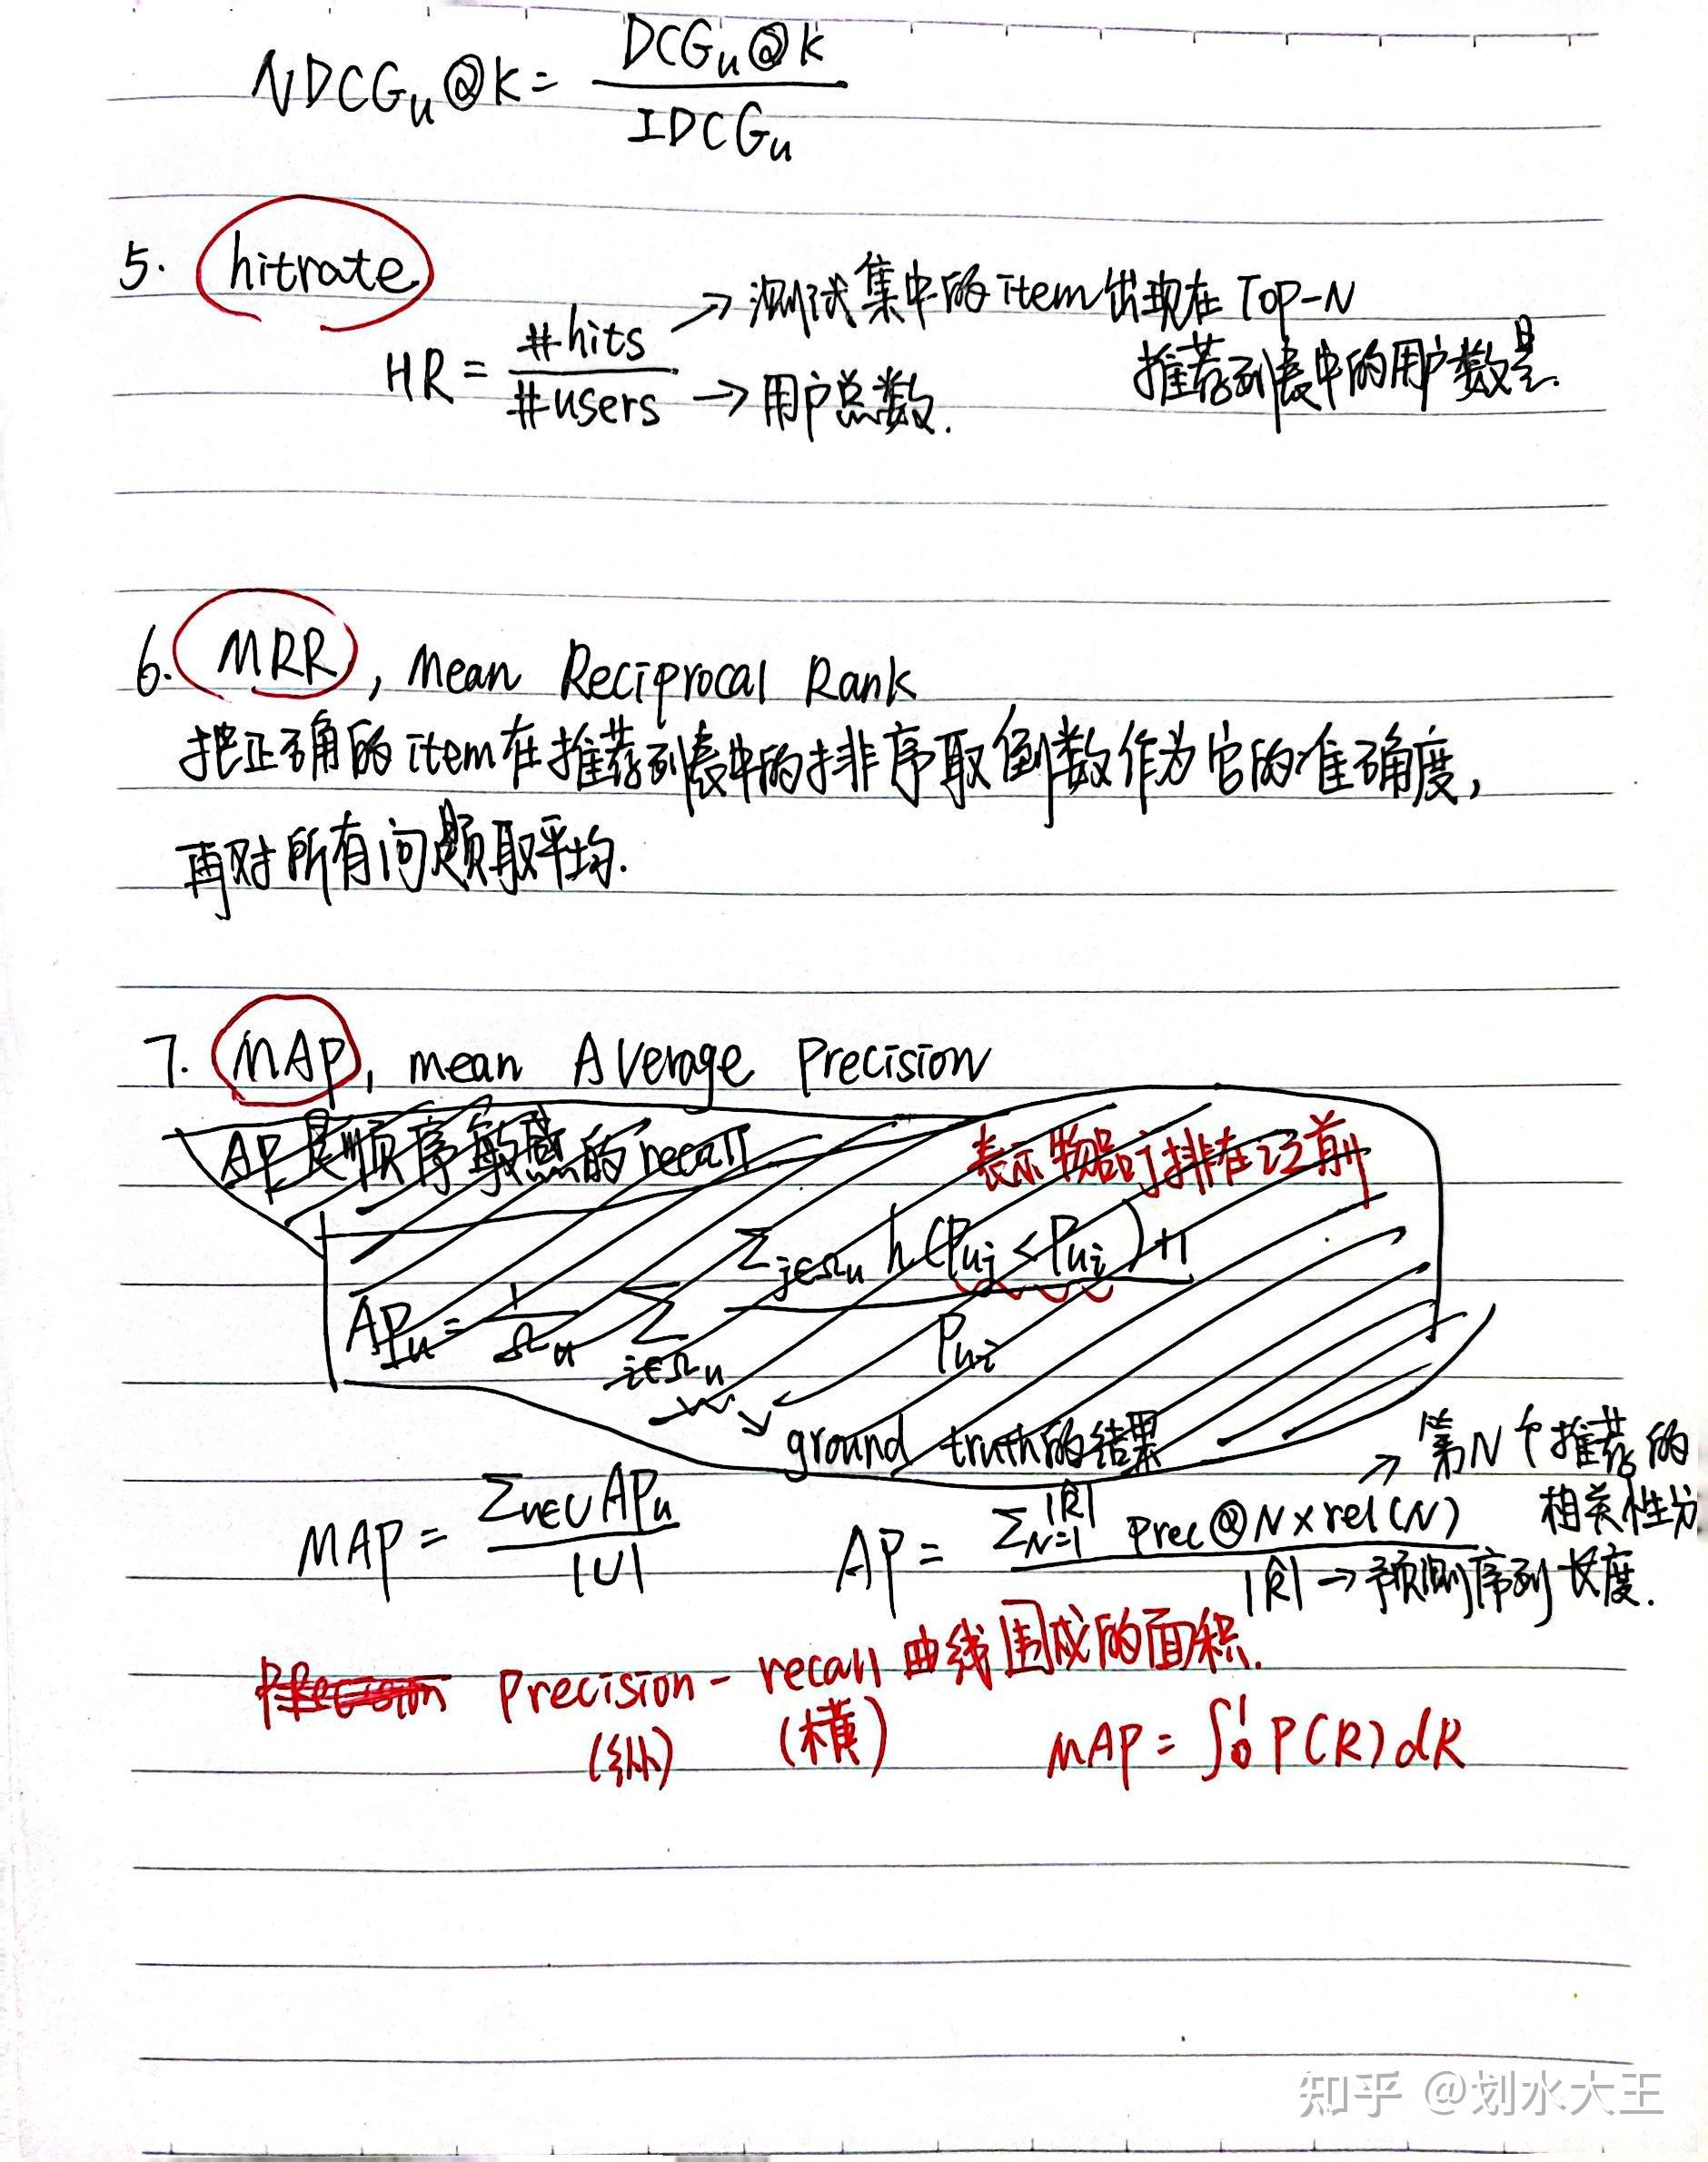 NDCGu@K = DCGu@K / IDCGu
5. hitrate
HR = #hits / #users
→ 测试集中的item出现在Top-N
推荐列表中的用户数量.
→ 用户总数.
6. MRR, Mean Reciprocal Rank
把正确的item在推荐列表中的排序取倒数作为它的准确度,
再对所有问题取平均.
7. MAP, mean Average Precision
AP是顺序敏感的recall
表示物品j排在i之前
APu = 1/Ωu Σi∈Ωu (Σj∈Ωu h(Puj < Pui) + 1) / Pui
ground truth的结果
→ 第N个推荐的
相关性分
MAP = Σu∈U APu / |U|
AP = Σ_{N=1}^{|R|} prec@N × rel(N) / |R| → 预测序列长度.
Precision Precision - recall 曲线围成的面积.
(纵) (横)
MAP = ∫₀¹ P(R) dR
知乎 @划水大王